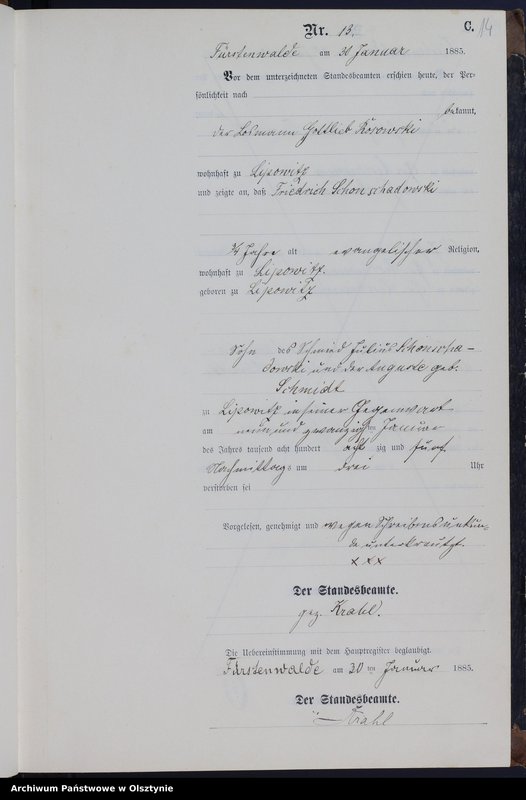 Nr. 13.
C. 14
Fürstenwalde am 30 Januar 1885.
Vor dem unterzeichneten Standesbeamten erschien heute, der Per-
sönlichkeit nach
bekannt,
der Losmann Gottlieb Kosowski
wohnhaft zu Lipowitz
und zeigte an, daß Friedrich Schonschadowski
3/4 Jahre alt evangelischer Religion,
wohnhaft zu Lipowitz.
geboren zu Lipowitz
Sohn des Schmied Julius Schonscha-
dowski und der Auguste geb.
Schmidt
zu Lipowitz in seiner Gegenwart
am neun und zwanzigsten Januar
des Jahres tausend acht hundert acht zig und fünf
Nachmittags um drei Uhr
verstorben sei
Vorgelesen, genehmigt und wegen Schreibensunkun-
de unterkreuzt.
x x x
Der Standesbeamte.
gez. Krahl.
Die Uebereinstimmung mit dem Hauptregister beglaubigt.
Fürstenwalde am 30 ten Januar 1885.
Der Standesbeamte.
Krahl
Archiwum Państwowe w Olsztynie